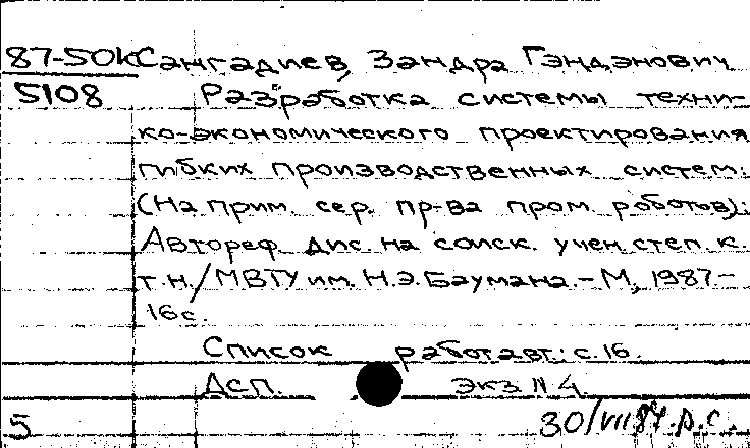 87-50к Сангадиев, Зандра Гэндэнович
5108 Разработка системы техни-
ко-экономического проектирования
гибких производственных систем:
(На прим. сер. пр-ва пром. роботов):
Автореф. дис. на соиск. учен. степ. к.
т.н./МВТУ им. Н.Э.Баумана.-М, 1987.-
16с.
Список работ авт.: с.16.
Дсп. Экз N 4
5 30/VII 87 р.с.